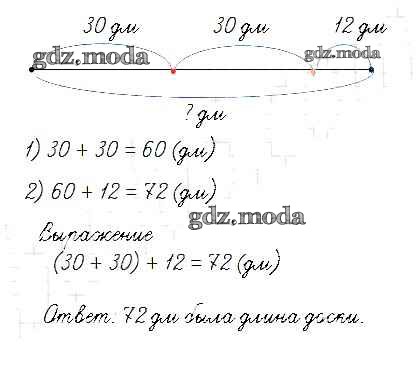 30 дм 30 дм 12 дм
gdz.moda gdz.moda
? дм
1) 30 + 30 = 60 (дм)
2) 60 + 12 = 72 (дм)
gdz.moda
Выражение
(30 + 30) + 12 = 72 (дм)
Ответ: 72 дм была длина доски.